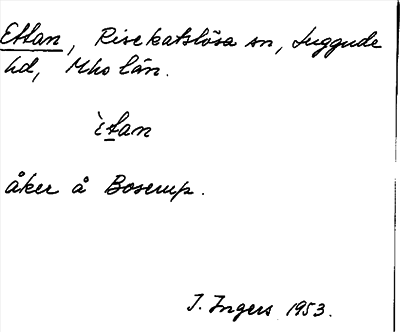 Ettan, Risekatslösa sn, Luggude
hd, Mho län.
ètan
åker å Boserup.
I. Ingers 1953.